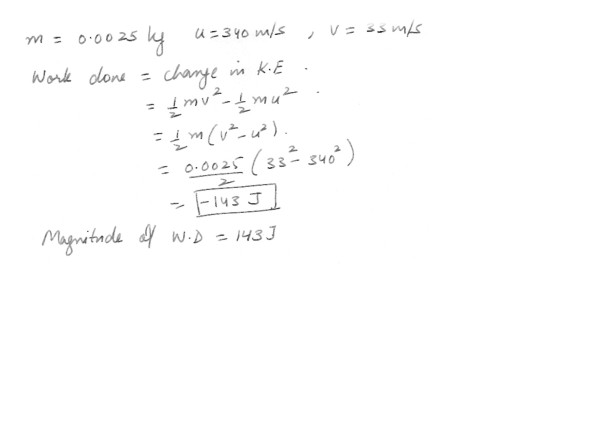 m = 0.0025 kg u = 340 m/s , v = 33 m/s
Work done = change in K.E .
= 1/2 mv² - 1/2 mu² .
= 1/2 m (v² - u²) .
= 0.0025/2 (33² - 340²)
= -143 J
Magnitude of W.D = 143 J